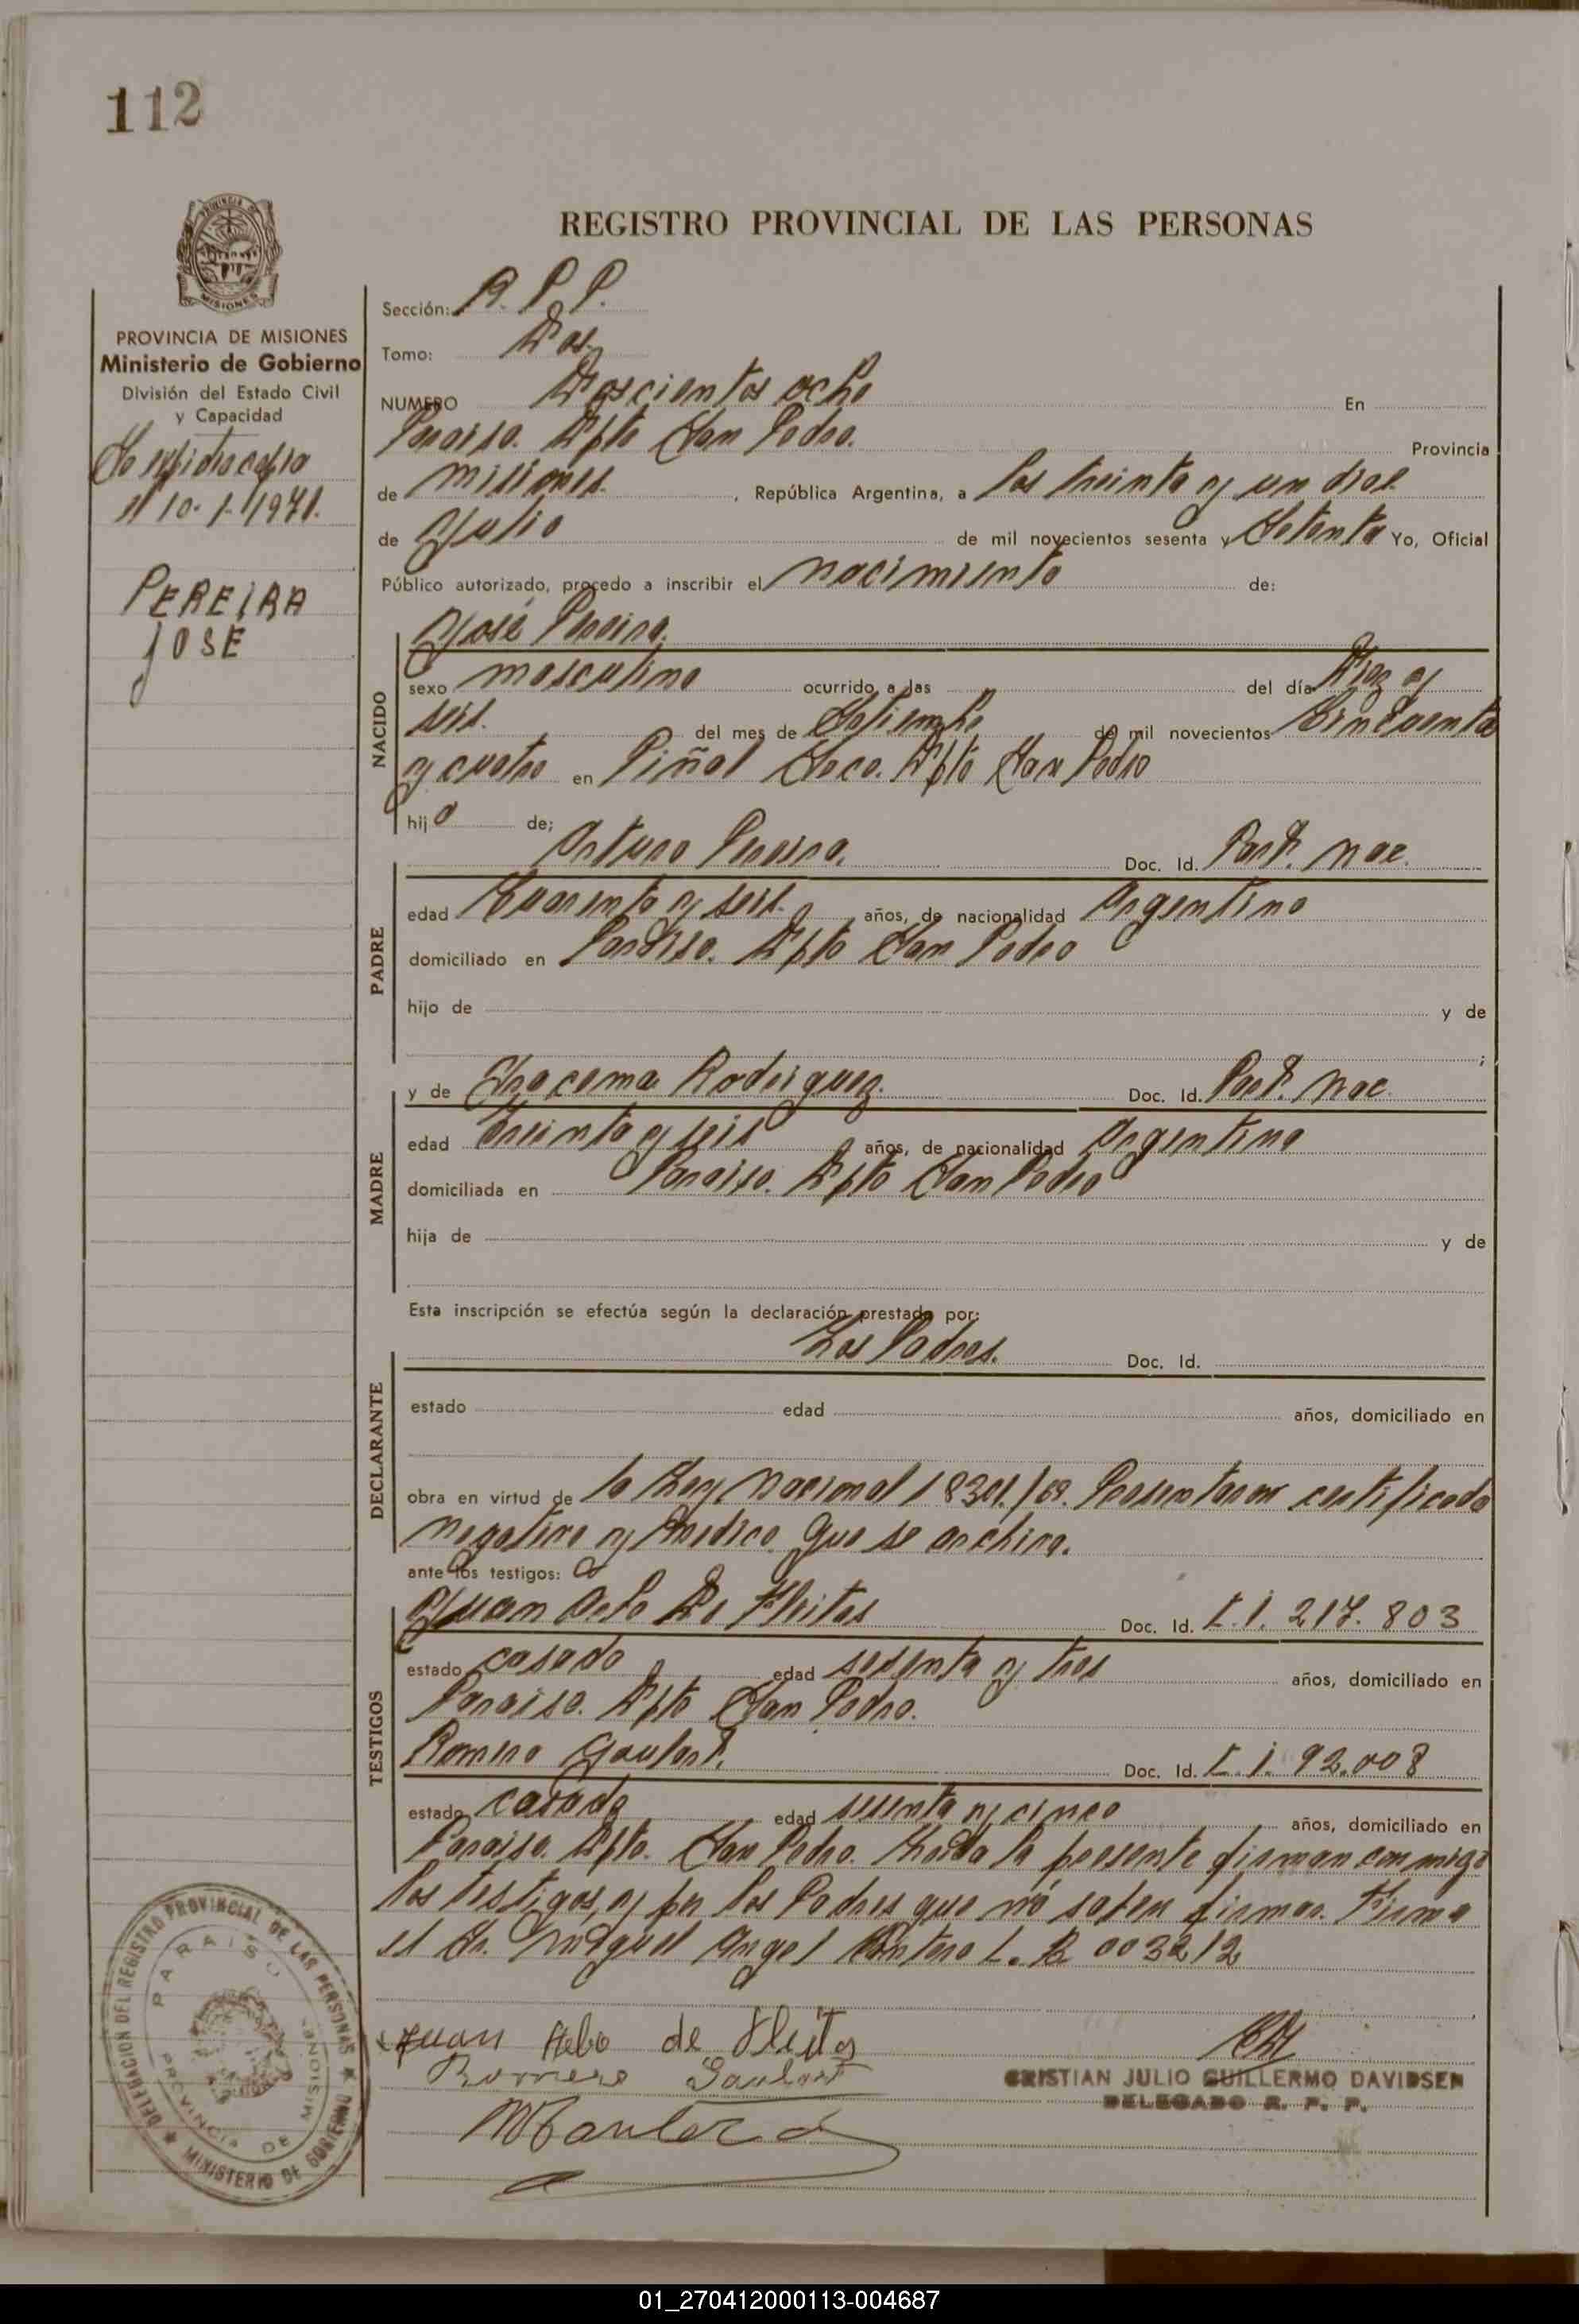 112
REGISTRO PROVINCIAL DE LAS PERSONAS
MISIONES
PROVINCIA DE MISIONES
Ministerio de Gobierno
División del Estado Civil
y Capacidad
Se expidio copia
el 10-1-1971.
PEREIRA
JOSE
Sección: R. P P.
Tomo: Dos.
NUMERO Doscientos ocho En
Paraiso. Dpto San Pedro. Provincia
de misiones. , República Argentina, a los treinta y un dias
de Julio de mil novecientos sesenta y Setenta Yo, Oficial
Público autorizado, procedo a inscribir el nacimiento de:
NACIDO
José Pereira.
sexo masculino ocurrido a las del día Diez y
seis. del mes de Setiembre de mil novecientos Cincuenta
y cuatro en Piñal Seco. Dpto San Pedro
hijo de;
PADRE
Arturo Pereira. Doc. Id. Part. nac.
edad Cuarenta y seis. años, de nacionalidad Argentino
domiciliado en Paraiso. Dpto San Pedro
hijo de y de
;
MADRE
y de Iracema Rodriguez. Doc. Id. Part. Nac.
edad Treinta y seis años, de nacionalidad Argentina
domiciliada en Paraiso. Dpto San Pedro
hija de y de
Esta inscripción se efectúa según la declaración prestada por:
DECLARANTE
Los Padres. Doc. Id.
estado edad años, domiciliado en
obra en virtud de la Ley Nacional 18301./69. Presentaron certificado
negativo y medico que se archiva.
ante los testigos:
TESTIGOS
Juan De Fleitas Doc. Id. C.I. 217.803
estado casado edad sesenta y tres años, domiciliado en
Paraiso. Dpto San Pedro.
Romero Doc. Id. C.I. 92.008
estado casado edad sesenta y cinco años, domiciliado en
Paraiso. Dpto. San Pedro. Leida la presente firman conmigo
los testigos, y por los Padres que no saben firmar. Firma
el Sr. Miguel Angel L. 003212
Juan de Fleitas
Romero
CRISTIAN JULIO GUILLERMO DAVIDSEN
DELEGADO R. P. P.
DELEGACION DEL REGISTRO PROVINCIAL DE LAS PERSONAS
MINISTERIO DE GOBIERNO
PARAISO
PROVINCIA DE MISIONES
01_270412000113-004687